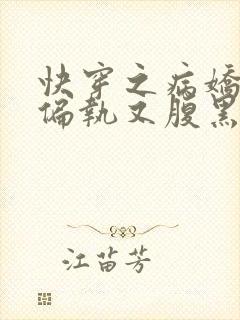 快穿之病嬌
偏執又腹黑
江苗芳